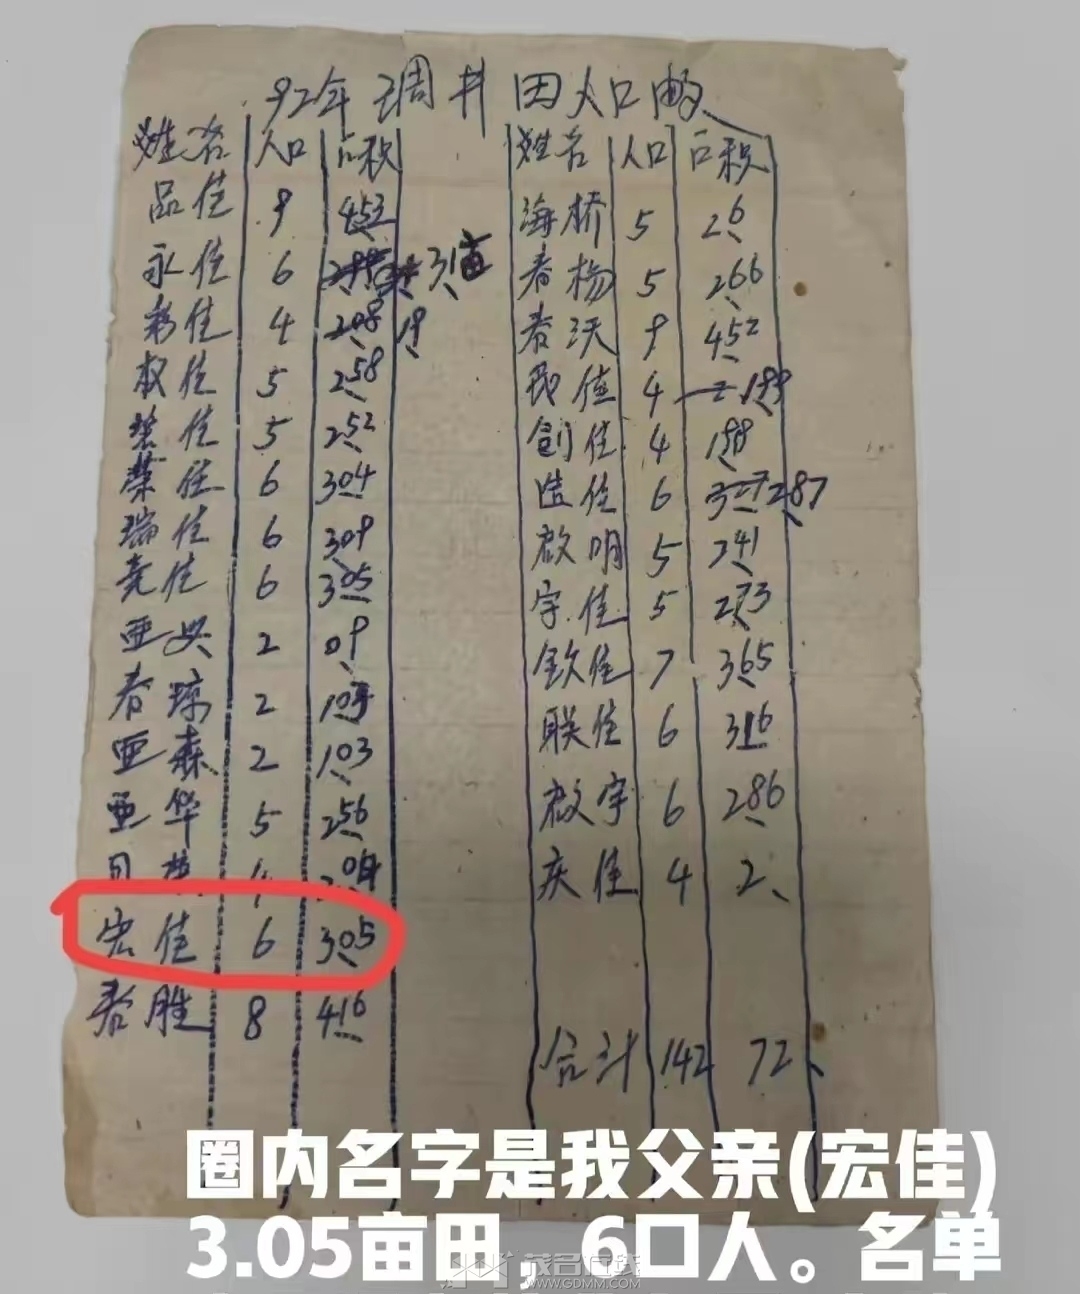 92年调井田人口亩
姓名 人口 面积
品佳 9 453
永佳 6 31亩
彩佳 4 208 19
权佳 5 258
碧佳 5 252
荣佳 6 304
瑞佳 6 309
尧佳 6 305
亚兴 2 09
春琼 2 103
亚森 2 103
亚华 5 256
4 204
宏佳 6 305
春胜 8 416
姓名 人口 面积
海桥 5 26
春杨 5 266
春沃 9 452
茂佳 4 189
创佳 4 188
佳 6 327 287
啟明 5 241
宇佳 5 273
钦佳 7 365
联佳 6 316
啟宇 6 286
庆佳 4 2
合计 142 72
圈内名字是我父亲(宏佳)
3.05亩田，6口人。名单
茂名在线
WWW.GDMM.COM